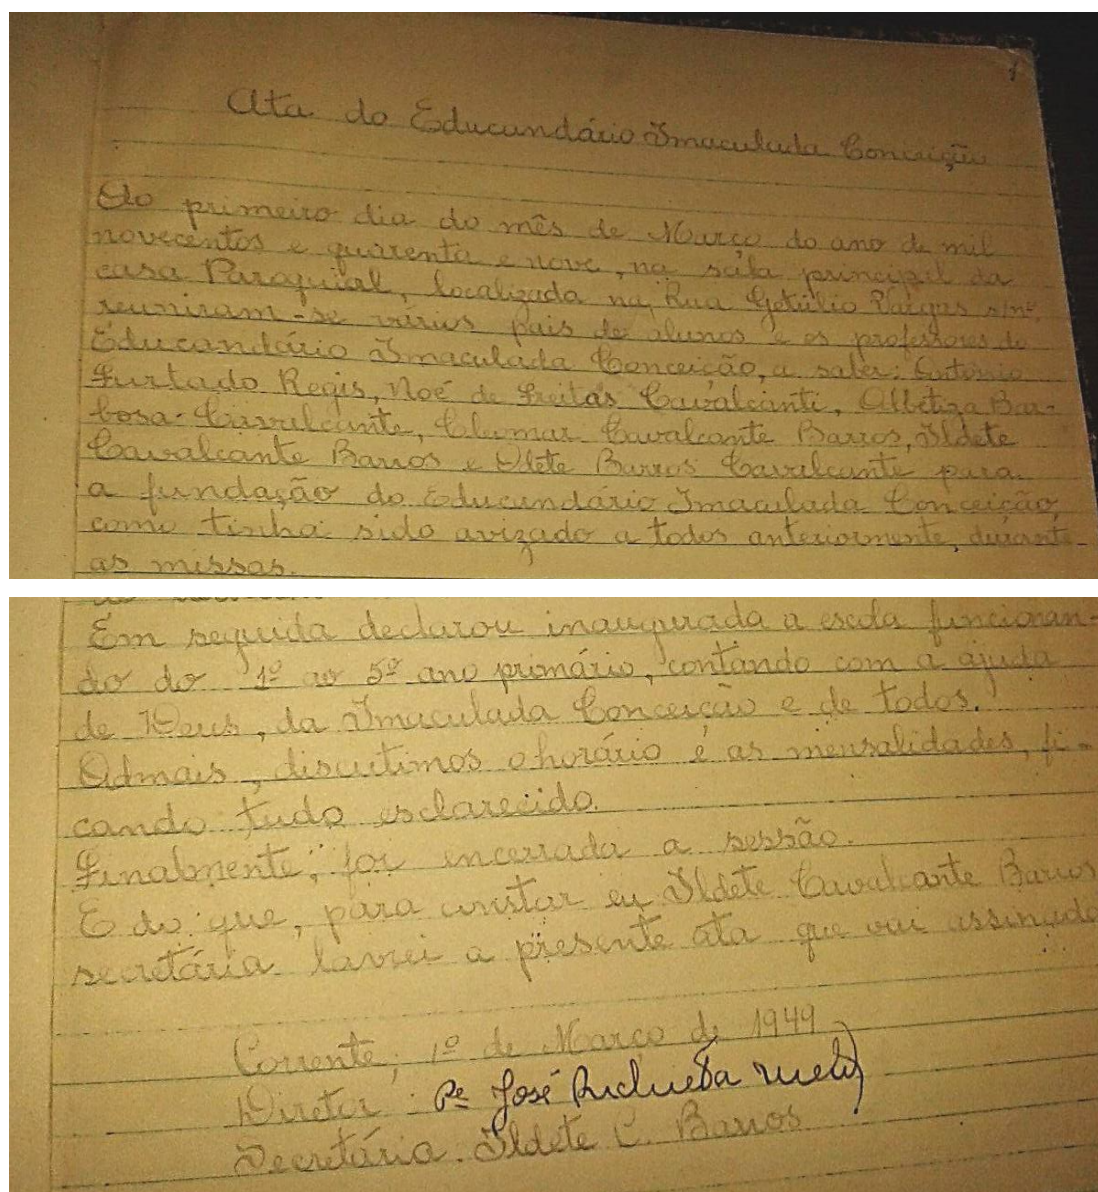 1
Ata do Educundário Imaculada Conceição
Ao primeiro dia do mês de Março do ano de mil
novecentos e quarenta e nove, na sala principal da
casa Paroquial, localizada na Rua Getúlio Vargas s/nº,
reuniram-se vários pais de alunos e os professores do
Educandário Imaculada Conceição, a saber: Antonio
Furtado Regis, Noé de Freitas Cavalcanti, Albetiza Bar-
bosa Cavalcante, Cleomar Cavalcante Barros, Ildete
Cavalcante Barros e Olete Barros Cavalcante para
a fundação do Educundário Imaculada Conceição,
como tinha sido avizado a todos anteriormente, durante
as missas.
Em seguida declarou inaugurada a escola funcionan-
do do 1º ao 5º ano primário, contando com a ajuda
de Deus, da Imaculada Conceição e de todos.
Admais, discutimos o horário e as mensalidades, fi-
cando tudo esclarecido.
Finalmente, foi encerrada a sessão.
E do que, para constar eu Ildete Cavalcante Barros
secretária lavrei a presente ata que vai assinado
Corrente, 1º de Março de 1949
Diretor: Pe José
Secretária. Ildete C. Barros